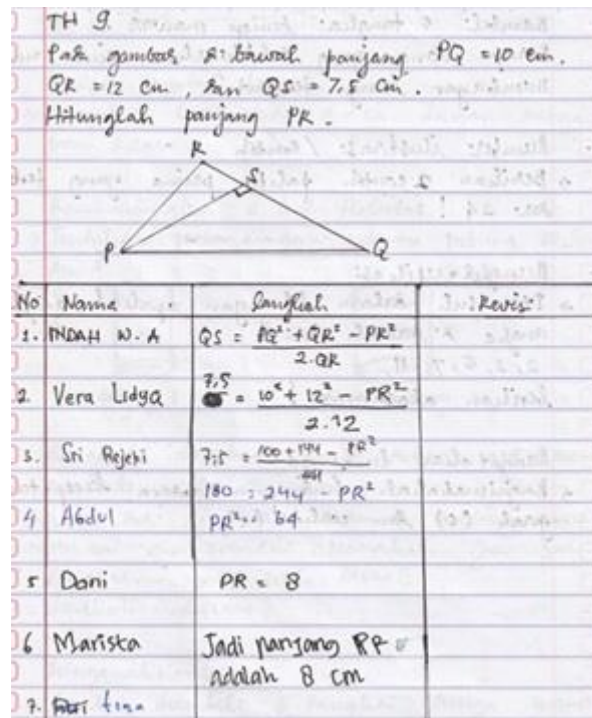 TH 9
Pada gambar di bawah panjang PQ = 10 cm.
QR = 12 cm, dan QS = 7,5 cm.
Hitunglah panjang PR.
R
S
P
Q
No Nama Langkah Revisi
1. INDAH W.A QS = PQ² + QR² - PR²
2.QR
2. Vera Lidya 7,5 = 10² + 12² - PR²
2.12
3. Sri Rejeki 7,5 = 100 + 144 - PR²
180 = 244 - PR²
4 Abdul PR² = 64
5 Dani PR = 8
6 Mariska Jadi panjang PR
adalah 8 cm
7.